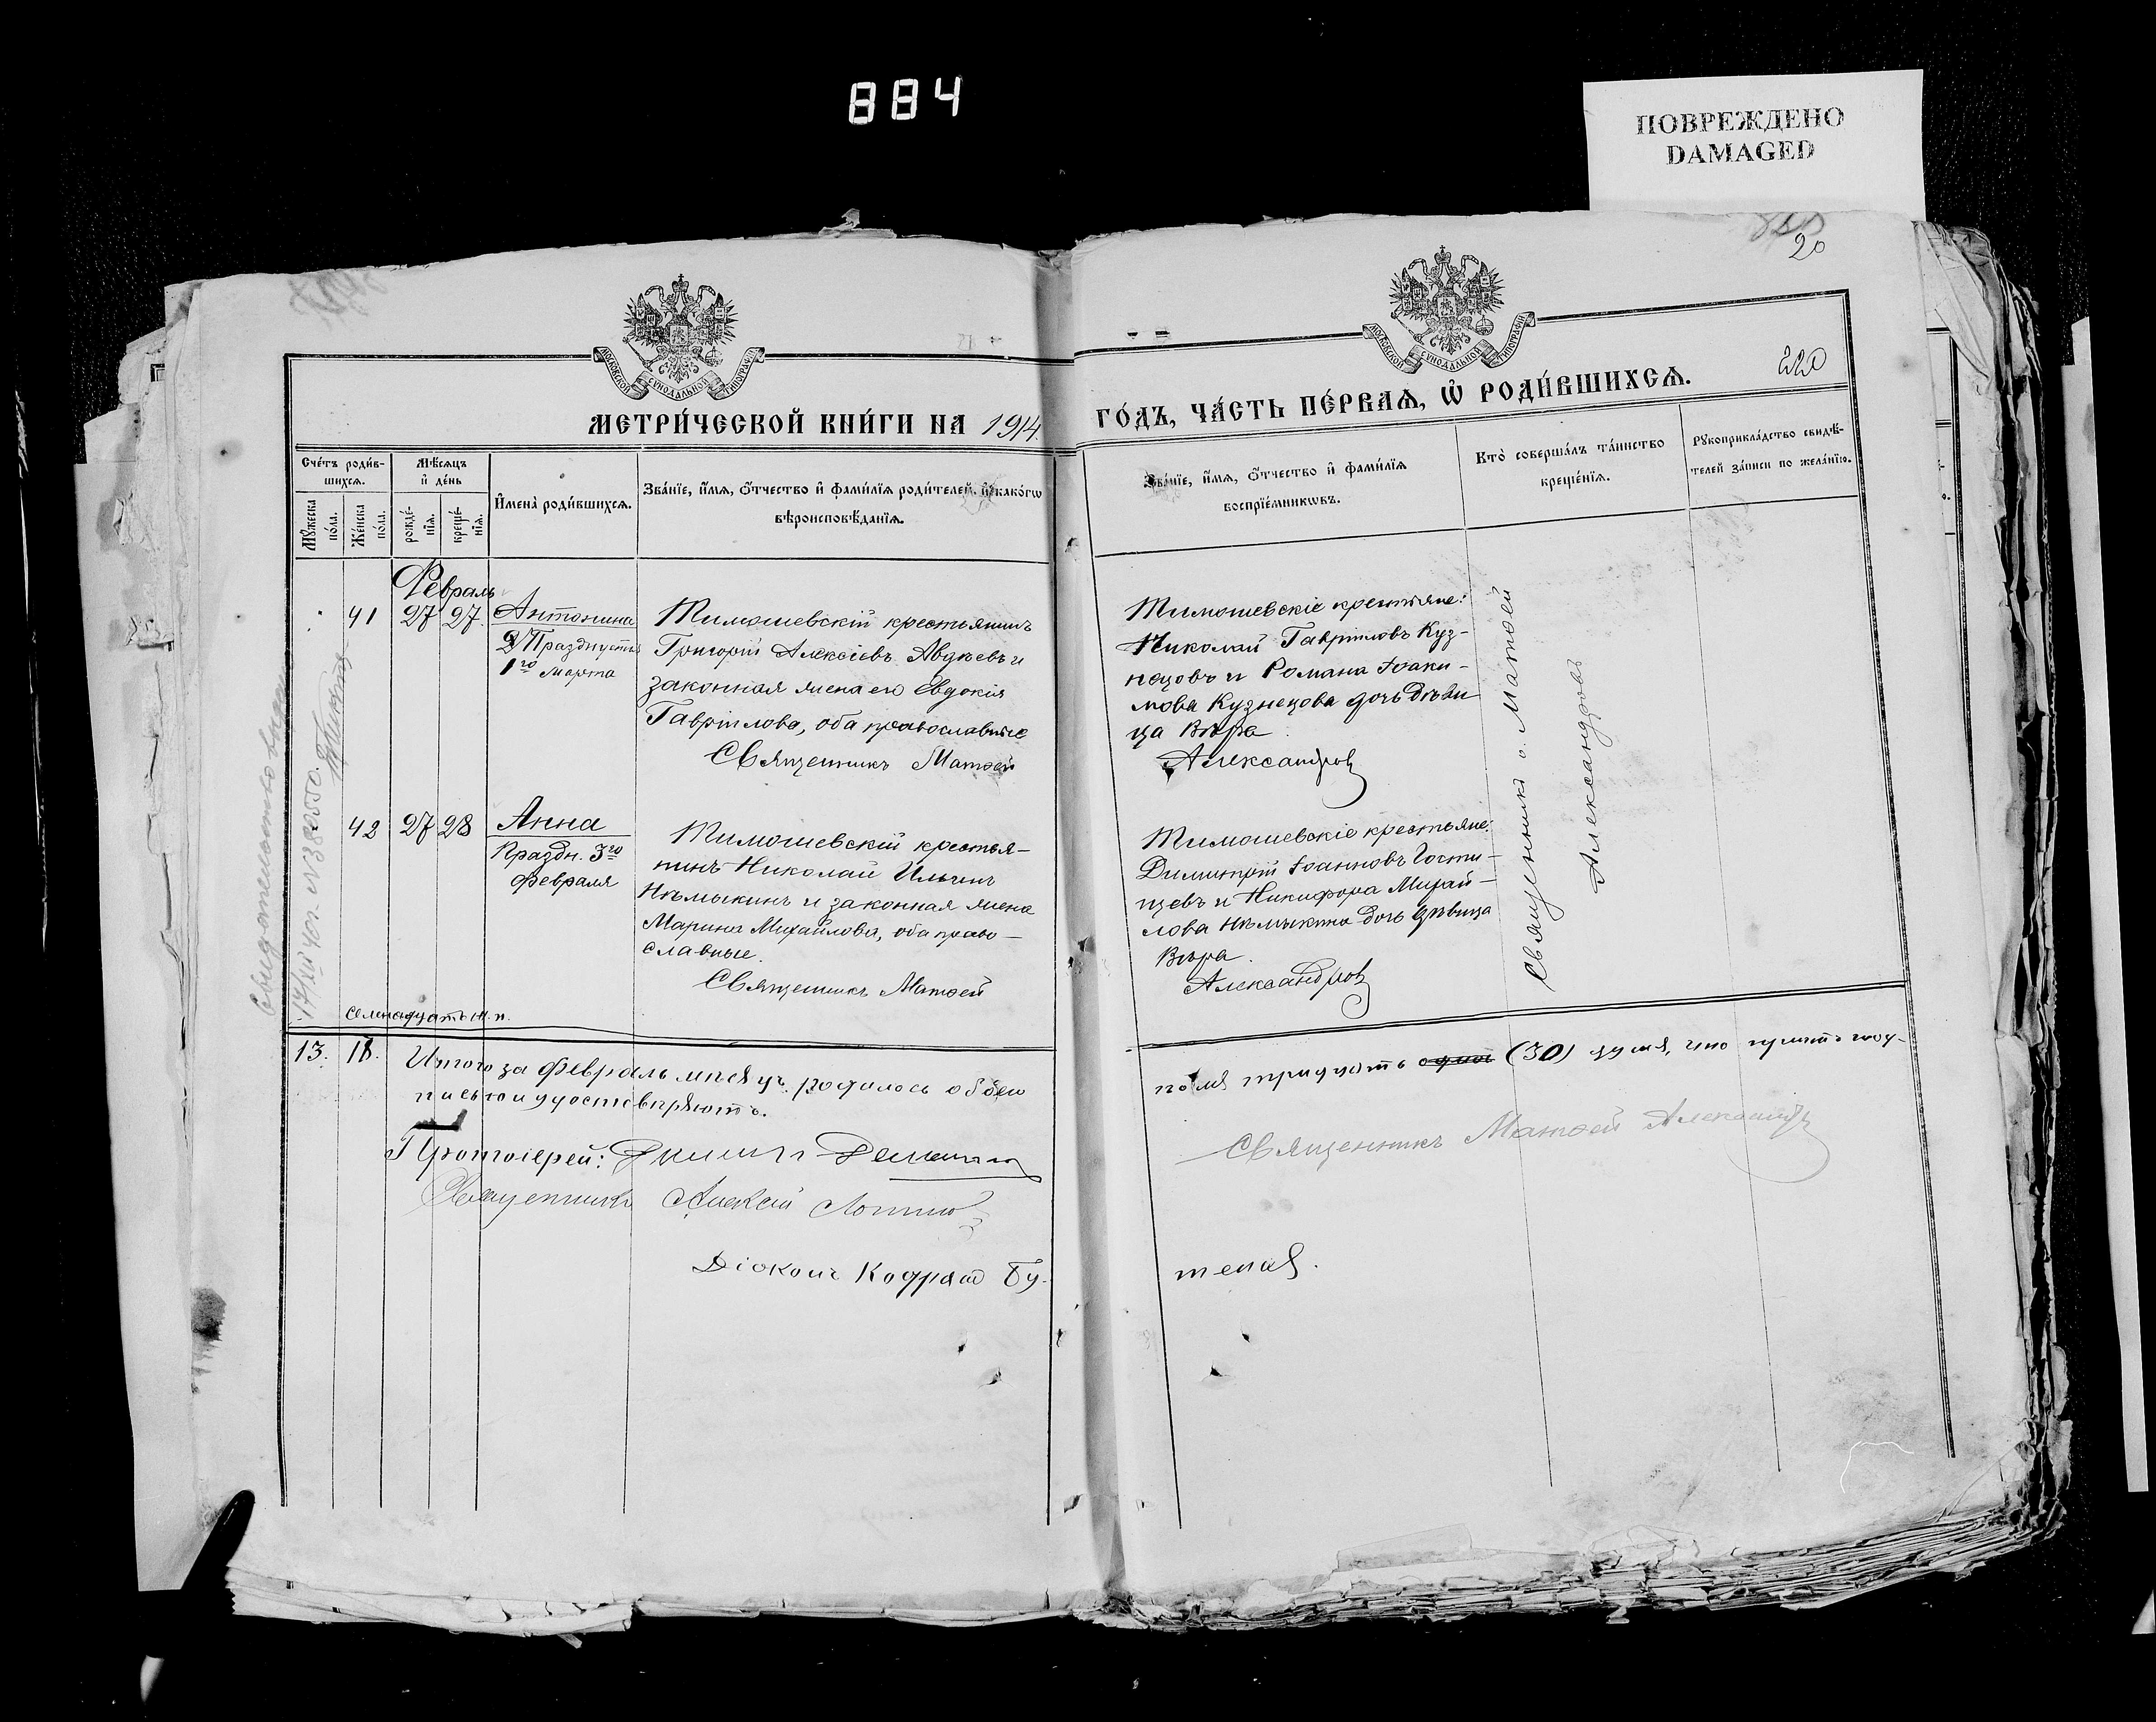 884
ПОВРЕЖДЕНО
DAMAGED
20
220
МОСКОВСКОЙ СѴНОДАЛЬНОЙ ТИПОГРАФІИ
МОСКОВСКОЙ СѴНОДАЛЬНОЙ ТИПОГРАФІИ
МЕТРИ́ЧЕСКОЙ КНИ́ГИ НА 1914
ГО́ДЪ, ЧА́СТЬ ПЕ́РВАѦ, Ѡ҆ РОДИ́ВШИХСѦ.
Сче́тъ роди́в-
шихсѧ.
Мꙋ́жеска
по́ла.
Же́нска
по́ла.
Мѣ́сѧцъ
и҆ де́нь
рожде́-
нїѧ.
креще́-
нїѧ.
И҆мена̀ роди́вшихсѧ.
Зва́нїе, и҆́мѧ, ѻ҆́тчество и҆ фами́лїѧ роди́телей, и҆ како́гѡ
вѣроисповѣ́данїѧ.
Зва́нїе, и҆́мѧ, ѻ҆́тчество и҆ фами́лїѧ
воспрїе́мникѡвъ.
Кто̀ соверша́лъ та́инство
креще́нїѧ.
Рꙋкоприкла́дство свидѣ́-
телей за́писи по жела́нїю.
Февраль
41 27 27. Антонина
Празднуетъ
1го марта
Тимошевскій крестьянинъ
Григорій Алексіевъ Авдѣевъ и
законная жена его Евдокія
Гавріилова, оба православные
Священникъ Матѳей
Тимошевскіе крестьяне:
Николай Гавріиловъ Куз-
нецовъ и Романа Іоаки-
мова Кузнецова дочь дѣви
ца Вѣра
Александровъ
Священникъ о. Матѳей
Александровъ
42 27 28 Анна
Праздн. 3го
февраля
Тимошевскій крестья-
нинъ Николай Ильинъ
Нѣмыкинъ и законная жена
Марина Михайлова, оба право-
славные.
Священникъ Матѳей
Тимошевскіе крестьяне:
Димитрій Іоанновъ Гости-
щевъ и Никифора Михай-
лова Нѣмыкина дочь дѣвица
Вѣра.
Александровъ
13. 18. Итого за февраль мѣсяцъ родилось обоего
пола тридцать одна (30) душа, что симъ под-
писью и удостовѣряютъ.
Протоіерей:
Священникъ Алексій
Священникъ Матѳей Александровъ
Діаконъ Кодратъ Бу-